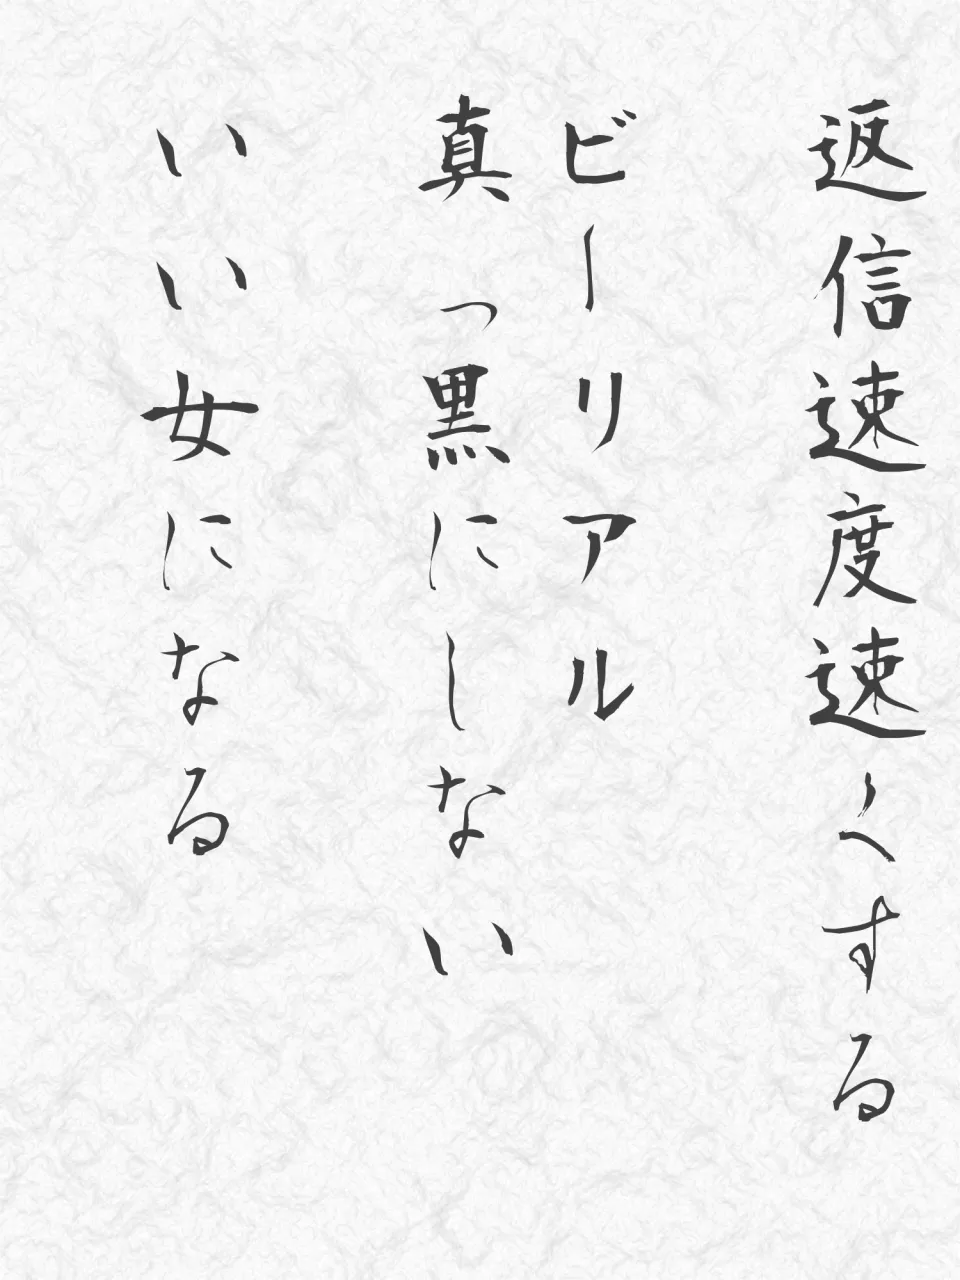 返信速度速くする
ビーリアル
真っ黒にしない
いい女になる